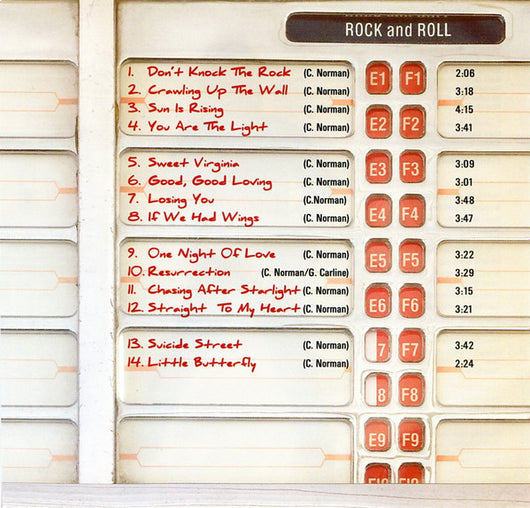 ROCK and ROLL
1. Don't Knock The Rock (C. Norman) E1 F1 2:06
2. Crawling Up The Wall (C. Norman) 3:18
3. Sun Is Rising (C. Norman) E2 F2 4:15
4. You Are The Light (C. Norman) 3:41
5. Sweet Virginia (C. Norman) E3 F3 3:09
6. Good, Good Loving (C. Norman) 3:01
7. Losing You (C.Norman) E4 F4 3:48
8. If We Had Wings (C. Norman) 3:47
9. One Night Of Love (C. Norman) E5 F5 3:22
10. Resurrection (C. Norman/G. Carline) 3:29
11. Chasing After Starlight (C. Norman) E6 F6 3:15
12. Straight To My Heart (C. Norman) 3:21
13. Suicide Street (C. Norman) 7 F7 3:42
14. Little Butterfly (C. Norman) 2:24
8 F8
E9 F9
E10 F10